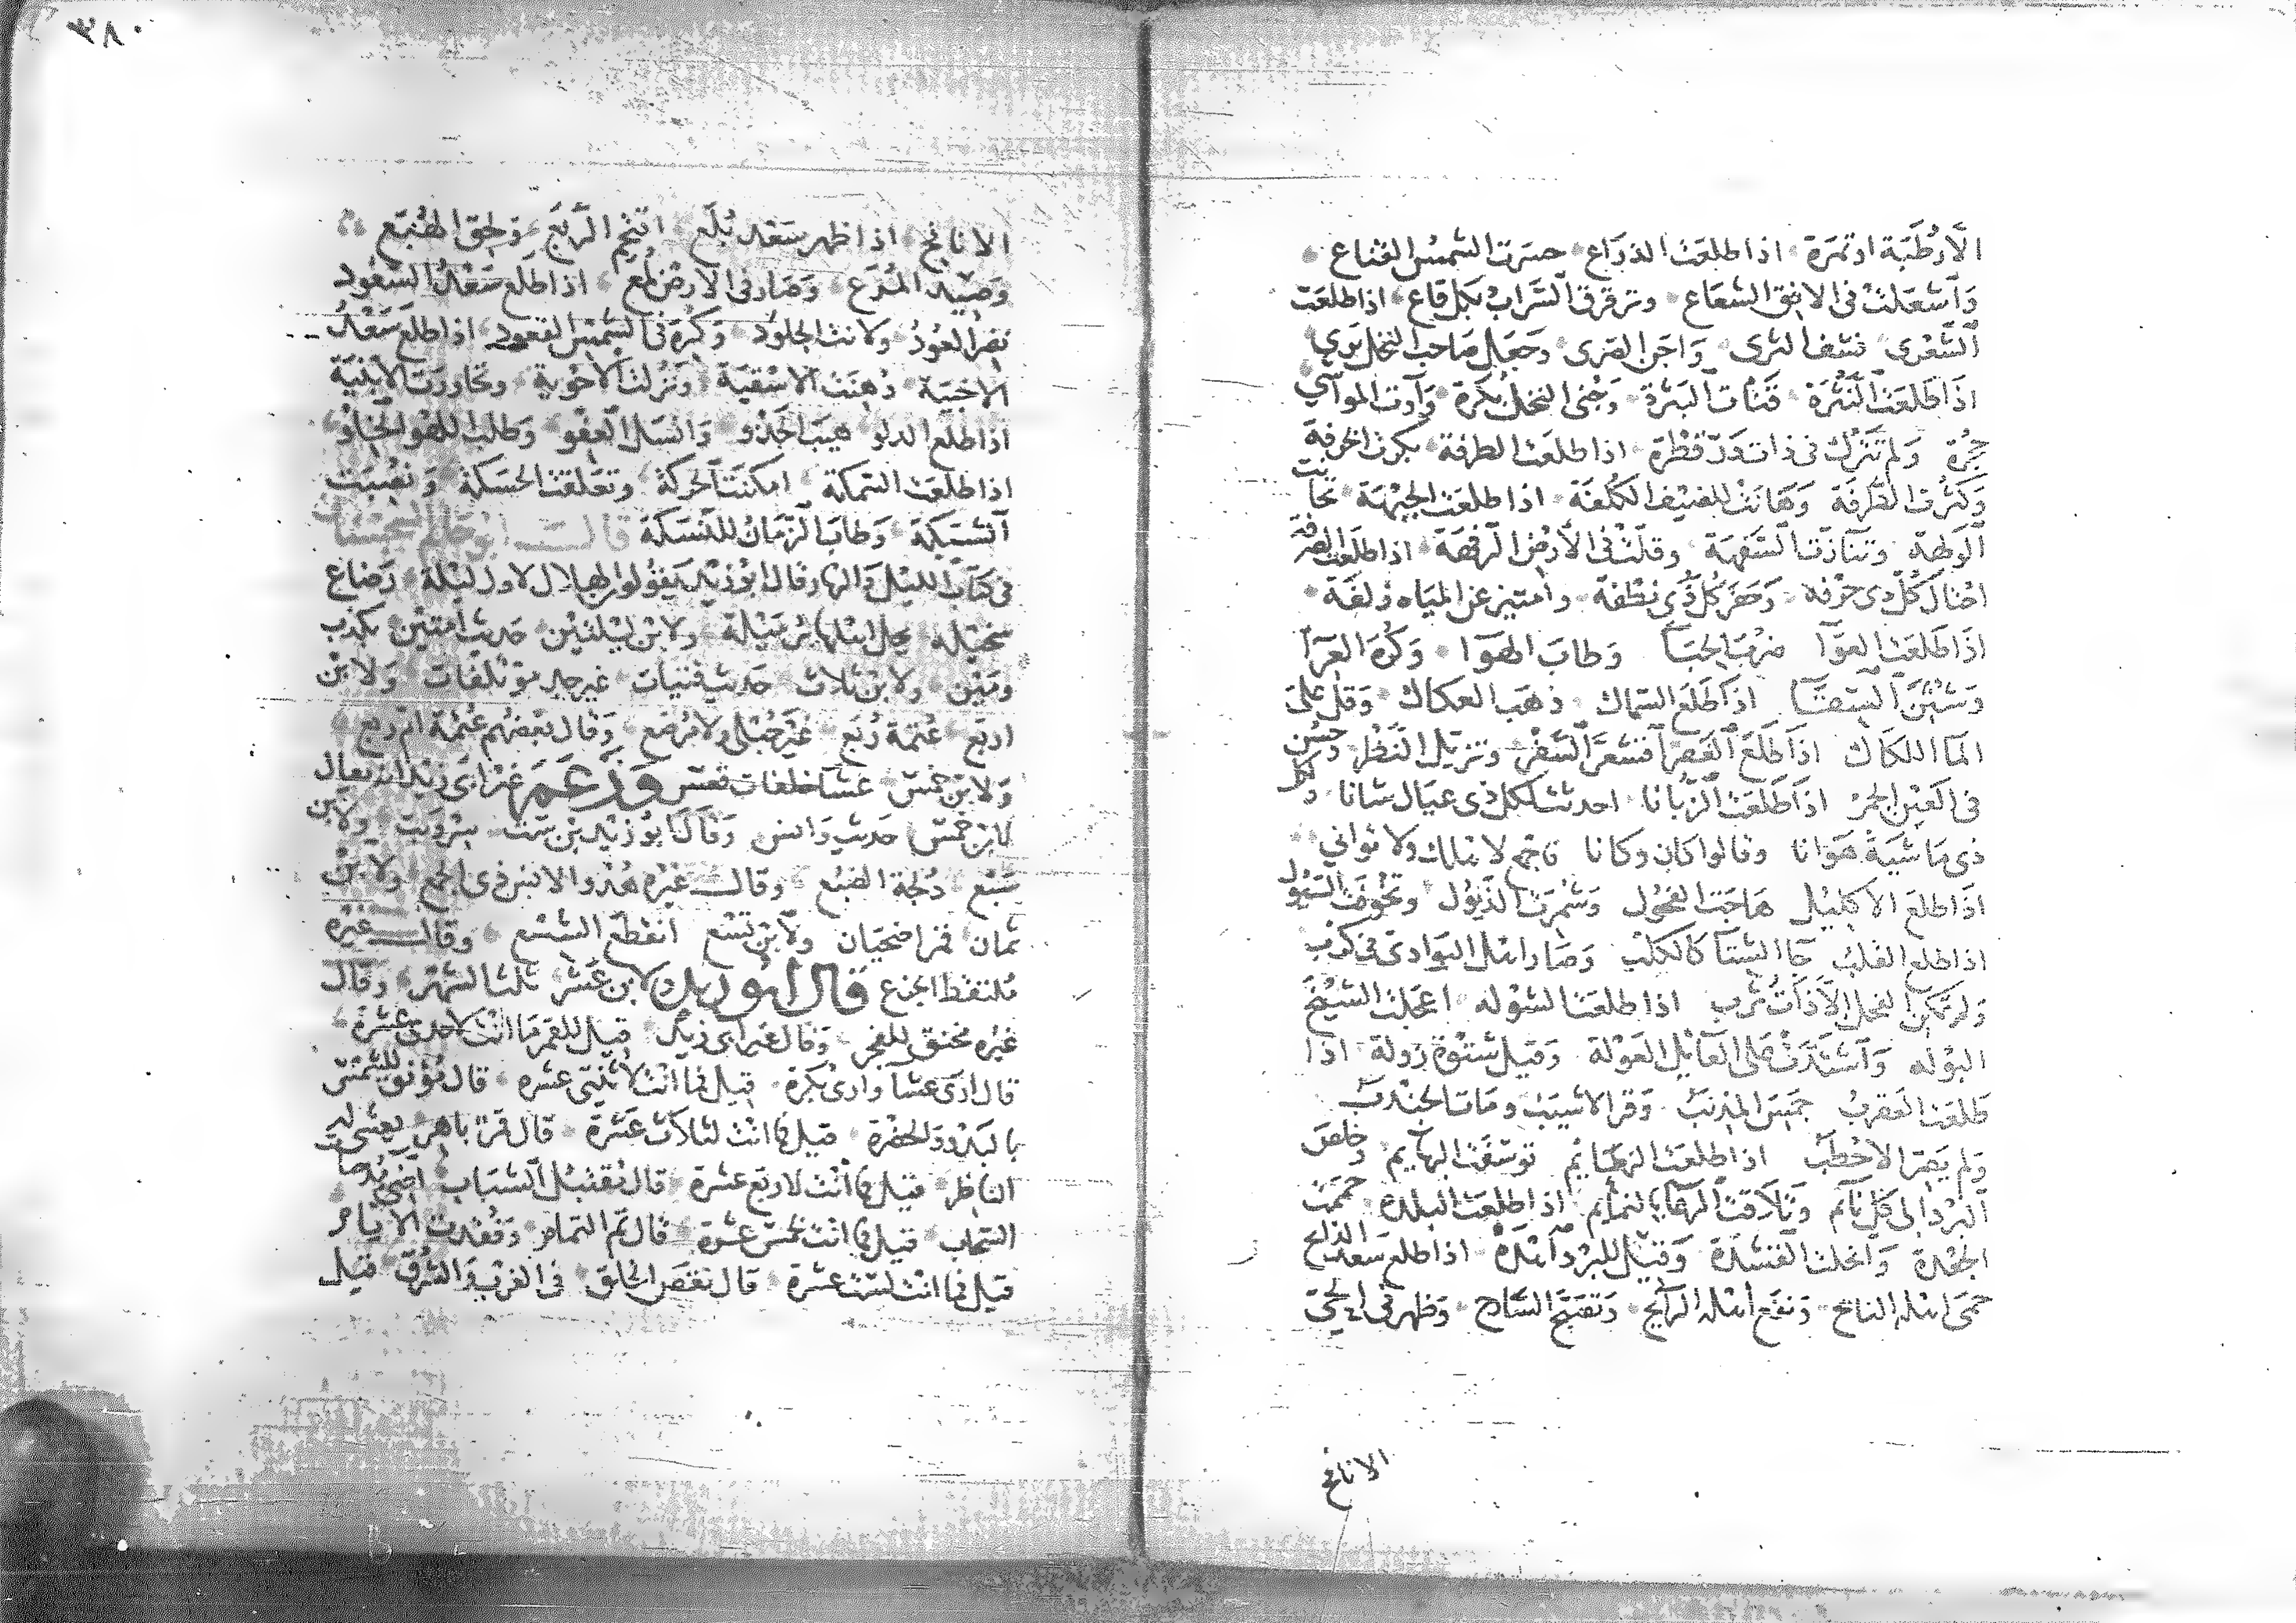 الا رطبة او تمرة اذا طلعت الذراع حسرت الشمس القناع
وأشعلت في الافق الشعاع وترقرق السراب بكل قاع اذا طلعت
الشعرى نشف الثرى واجن الصرى وجعل صاحب النخل يرى
اذا طلعت النثرة قنات البسرة وجنى النخل بكرة وآوت المواشي
حجرة ولم تترك في ذات در قطرة اذا طلعت الطرفة بكرت الخرفة
وكثرت الطرفة وهانت للضيف الكلفة اذا طلعت الجبهة تحانت
الولهة وتنازت السفهة وقلت في الأرض الرفهة اذا طلعت الصرفة
احتال كل ذي حرفة وجفر كل ذي نطفة وامتيز عن المياه زلفة
اذا طلعت العوا ضرب الخبا وطاب الهوا وكره العرا
وشنن السقا اذا طلع السماك ذهب العكاك وقل على
الما اللكاك اذا طلع الغفر اقشعر السفر وتزيل النضر وحسن
في العين الجمر اذا طلعت الزبانا احدثت لكل ذي عيال شانا ولكل
ذي ماشية هوانا وقالوا كان وكانا فاجمع لاهلك ولا تواني
اذا طلع الاكليل هاجت الفحول وشمرت الذيول وتخوفت السيول
اذا طلع القلب جا الشتا كالكلب وصار اهل البوادي في كرب
ولم تمكن الفحل الا ذات ثرب اذا طلعت الشوله اعجلت الشيخ
البوله واشتدت على العايل العولة وقيل شتوة زولة اذا
طلعت العقرب جمس المذنب وقر الاشيب ومات الجندب
ولم يصر الاخطب اذا طلعت النعايم توسفت البهايم وخلص
البرد الى كل نايم وتلاقت الرعا بالنمايم اذا طلعت البلدة حممت
الجعدة واكلت القشدة وقيل للبرد اهده اذا طلع سعد الذابح
حمى اهله النابح ونفع اهله الرايح وتصبح السارح وظهر في الحي
الانافح
٣٨٠
الانافح اذا ظهر سعد بلع اقتحم الربع ولحق الهبع
وصيد المرع وصار في الارض لمع اذا طلع سعد السعود
نضر العود ولانت الجلود وكره في الشمس القعود اذا طلع سعد
الاخبية دهنت الاسقية ونزلت الاحوية وتجاورت الابنية
اذا طلع الدلو هيب الجذو وانسل العفو وطلب اللهو الخلو
اذا طلعت السمكة امكنت الحركة وتعلقت الحسكة ونصبت
الشبكة وطاب الزمان للنسكة قال ابو حاتم السجستاني
في كتاب الليل والنهار وقال ابو زيد يقولون الهلال لاول ليلة رضاع
سخيلة يحل اهلها برميلة ولابن ليلتين حديث أمتين بكذب
ومين ولابن ثلاث حديث فتيات غير جد مؤتلفات ولابن
اربع عتمة ربع غير حبلى ولا مرضع وقال بعضهم عتمة ام ربع
ولابن خمس عشا خلفات قعس وزعم غير ابي زيد انه يقال
لابن خمس حديث وانس وقال ابو زيد ابن ست سر وبت ولابن
سبع دلجة الضبع وقال غيره هدو الانس ذي الجمع ولابن
ثمان قمر اضحيان ولابن تسع انقطع الشسع وقال غيره
ملتقط الجزع قال ابو زيد لابن عشر ثلث الشهر وقال
غيره مخنق للفجر وقال غير ابي زيد قيل للقمر ما انت لاحدى عشرة
قال ارى عشا وارى بكرة قيل فما انت لاثنتي عشرة قال مؤنق للشمس
بالبدو والحضرة قيل فما انت لثلاث عشرة قال قمر باهر يعشى له
الناظر قيل فما انت لاربع عشرة قال مقتبل الشباب اضي مدحيات
السحاب قيل فما انت لخمس عشرة قال تم التمام ونفدت الايام
قيل فما انت لست عشرة قال نقص الخلق في الغرب والشرق قيل